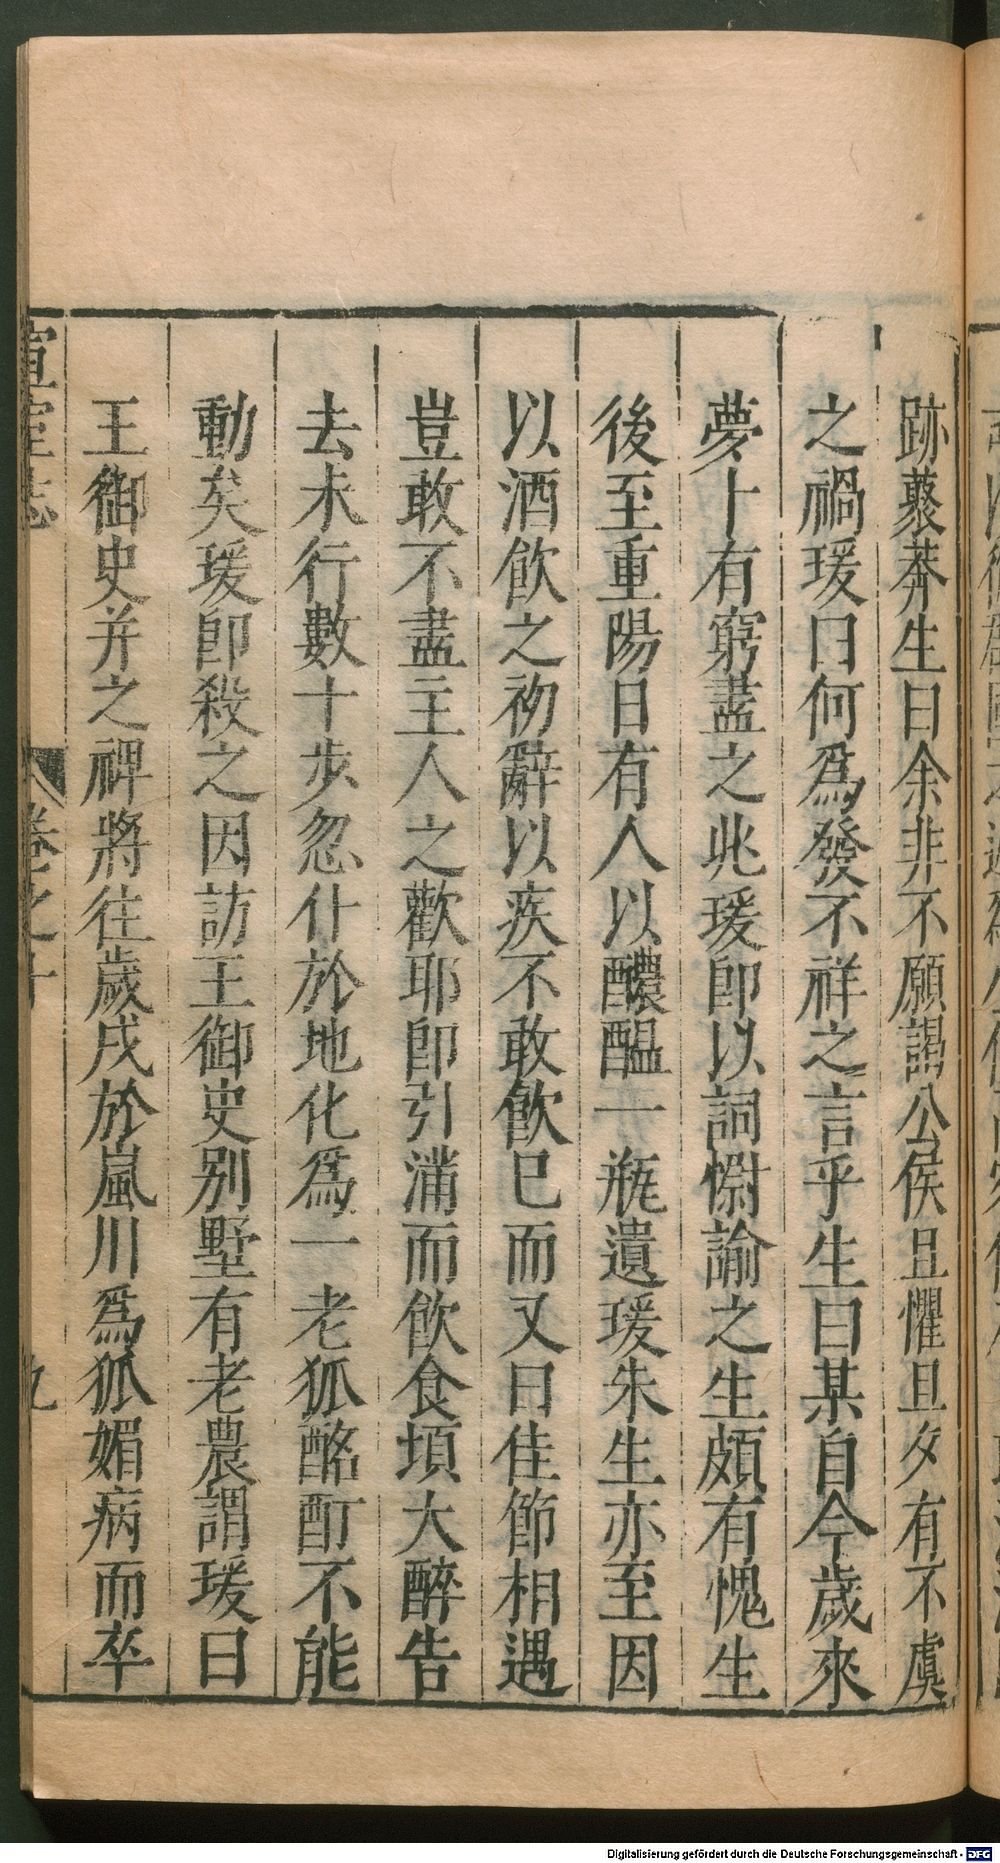 跡藂莽生曰余非不願謁公侯且懼旦夕有不虞
之禍瑗曰何爲發不祥之言乎生曰某自今歲來
夢卜有窮盡之兆瑗卽以詞慰諭之生頗有愧生
後至重陽日有人以醲醖一瓶遺瑗朱生亦至因
以酒飲之初辭以疾不敢飲已而又曰佳節相遇
豈敢不盡主人之歡耶卽引滿而飲食頃大醉告
去未行數十步忽仆於地化爲一老狐酩酊不能
動矣瑗卽殺之因訪王御史别墅有老農謂瑗曰
王御史并之裨將往歲戍於嵐川爲狐媚病而卒
宣室志
卷之十
九
Digitalisierung gefördert durch die Deutsche Forschungsgemeinschaft - DFG